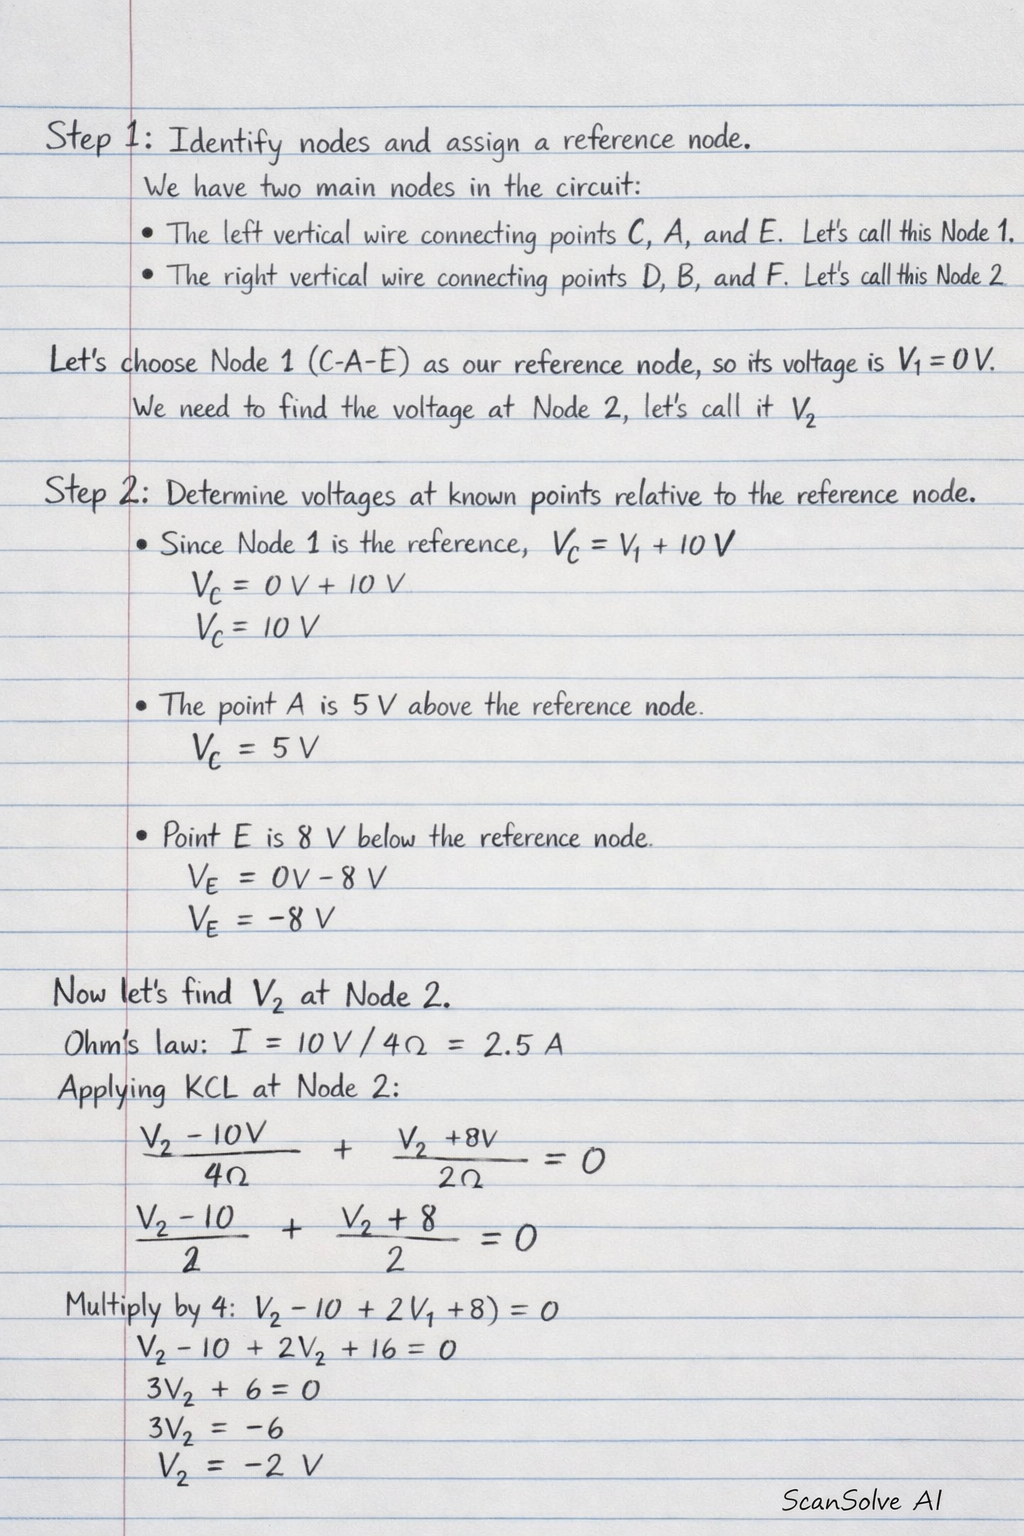 Step 1: Identify nodes and assign a reference node.
We have two main nodes in the circuit:
• The left vertical wire connecting points C, A, and E. Let's call this Node 1.
• The right vertical wire connecting points D, B, and F. Let's call this Node 2
Let's choose Node 1 (C-A-E) as our reference node, so its voltage is V₁ = 0 V.
We need to find the voltage at Node 2, let's call it V₂
Step 2: Determine voltages at known points relative to the reference node.
• Since Node 1 is the reference, V_C = V₁ + 10 V
V_C = 0 V + 10 V
V_C = 10 V
• The point A is 5 V above the reference node.
V_C = 5 V
• Point E is 8 V below the reference node.
V_E = 0V - 8 V
V_E = -8 V
Now let's find V₂ at Node 2.
Ohm's law: I = 10 V / 4Ω = 2.5 A
Applying KCL at Node 2:
(V₂ - 10V)/4Ω + (V₂ +8V)/2Ω = 0
(V₂ - 10)/2 + (V₂ + 8)/2 = 0
Multiply by 4: V₂ - 10 + 2V₁ + 8) = 0
V₂ - 10 + 2V₂ + 16 = 0
3V₂ + 6 = 0
3V₂ = -6
V₂ = -2 V
ScanSolve AI